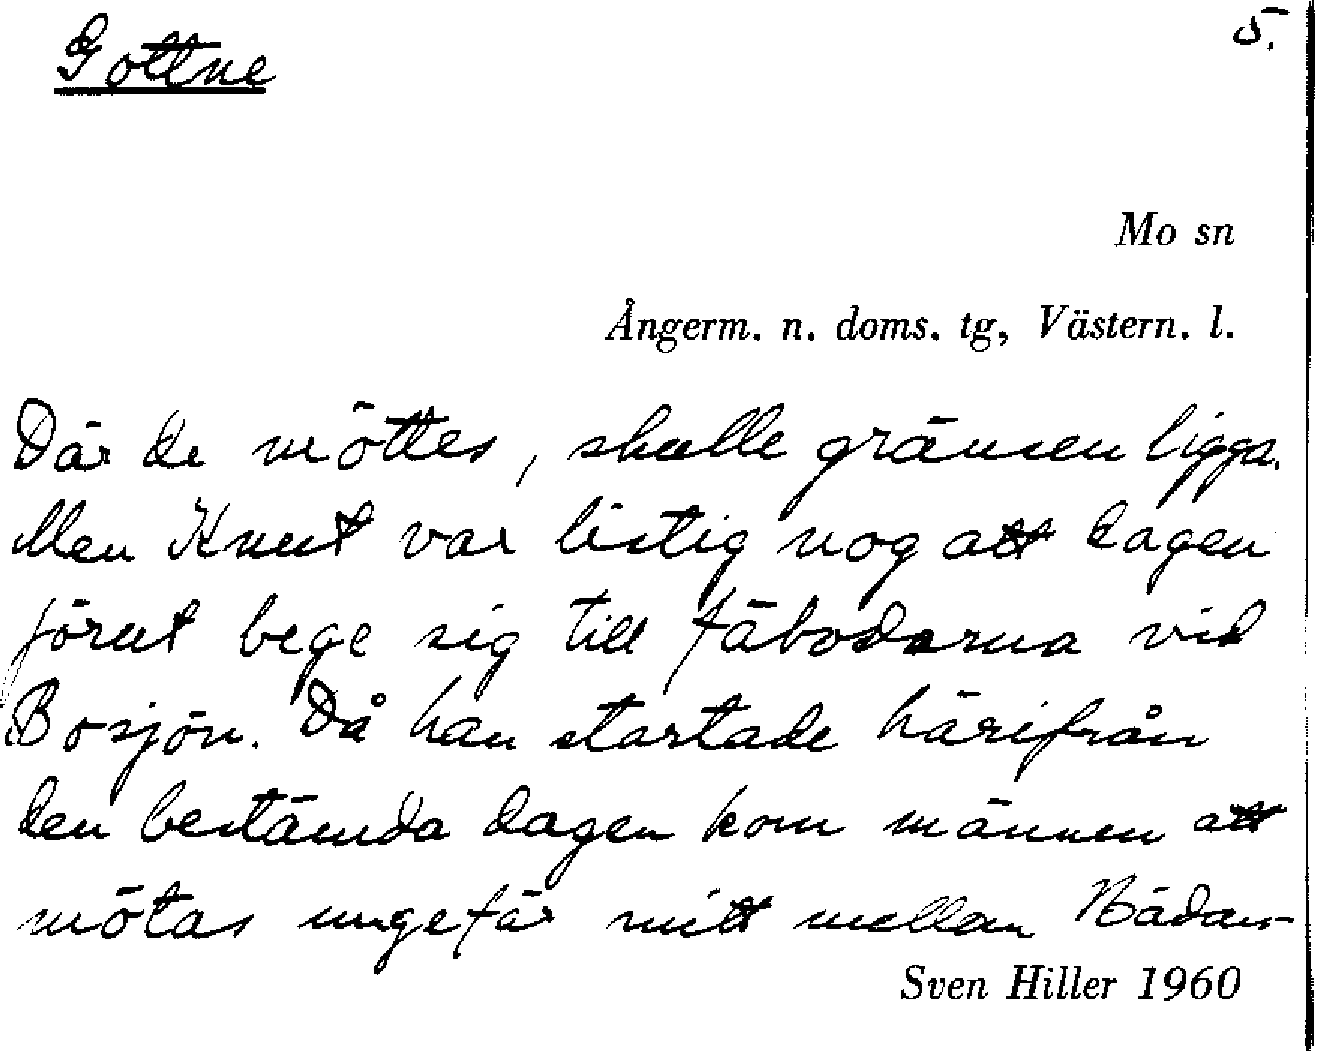 Gottne
5.
Mo sn
Ångerm. n. doms. tg, Västern. l.
Där de möttes, skulle gränsen ligga.
Men Knut var listig nog att dagen
förut bege sig till fäbodarna vid
Bosjön. Då han startade härifrån
den bestämda dagen kom männen att
mötas ungefär mitt mellan Nädan-
Sven Hiller 1960